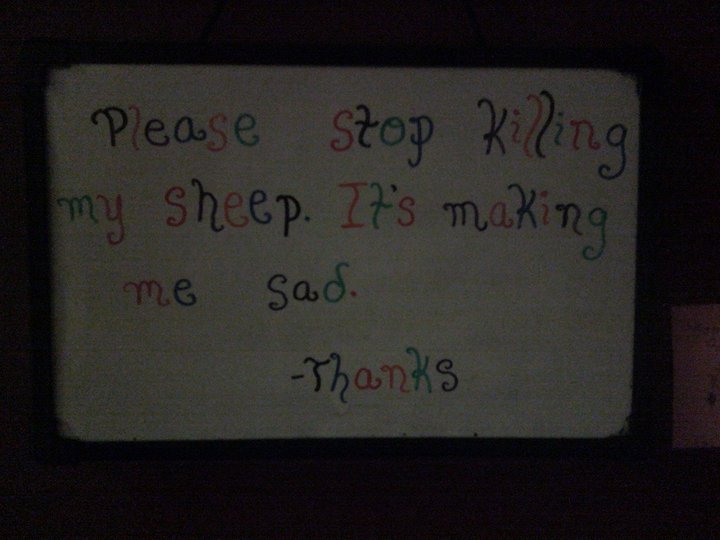 Please stop killing
my sheep. It's making
me sad.
-Thanks